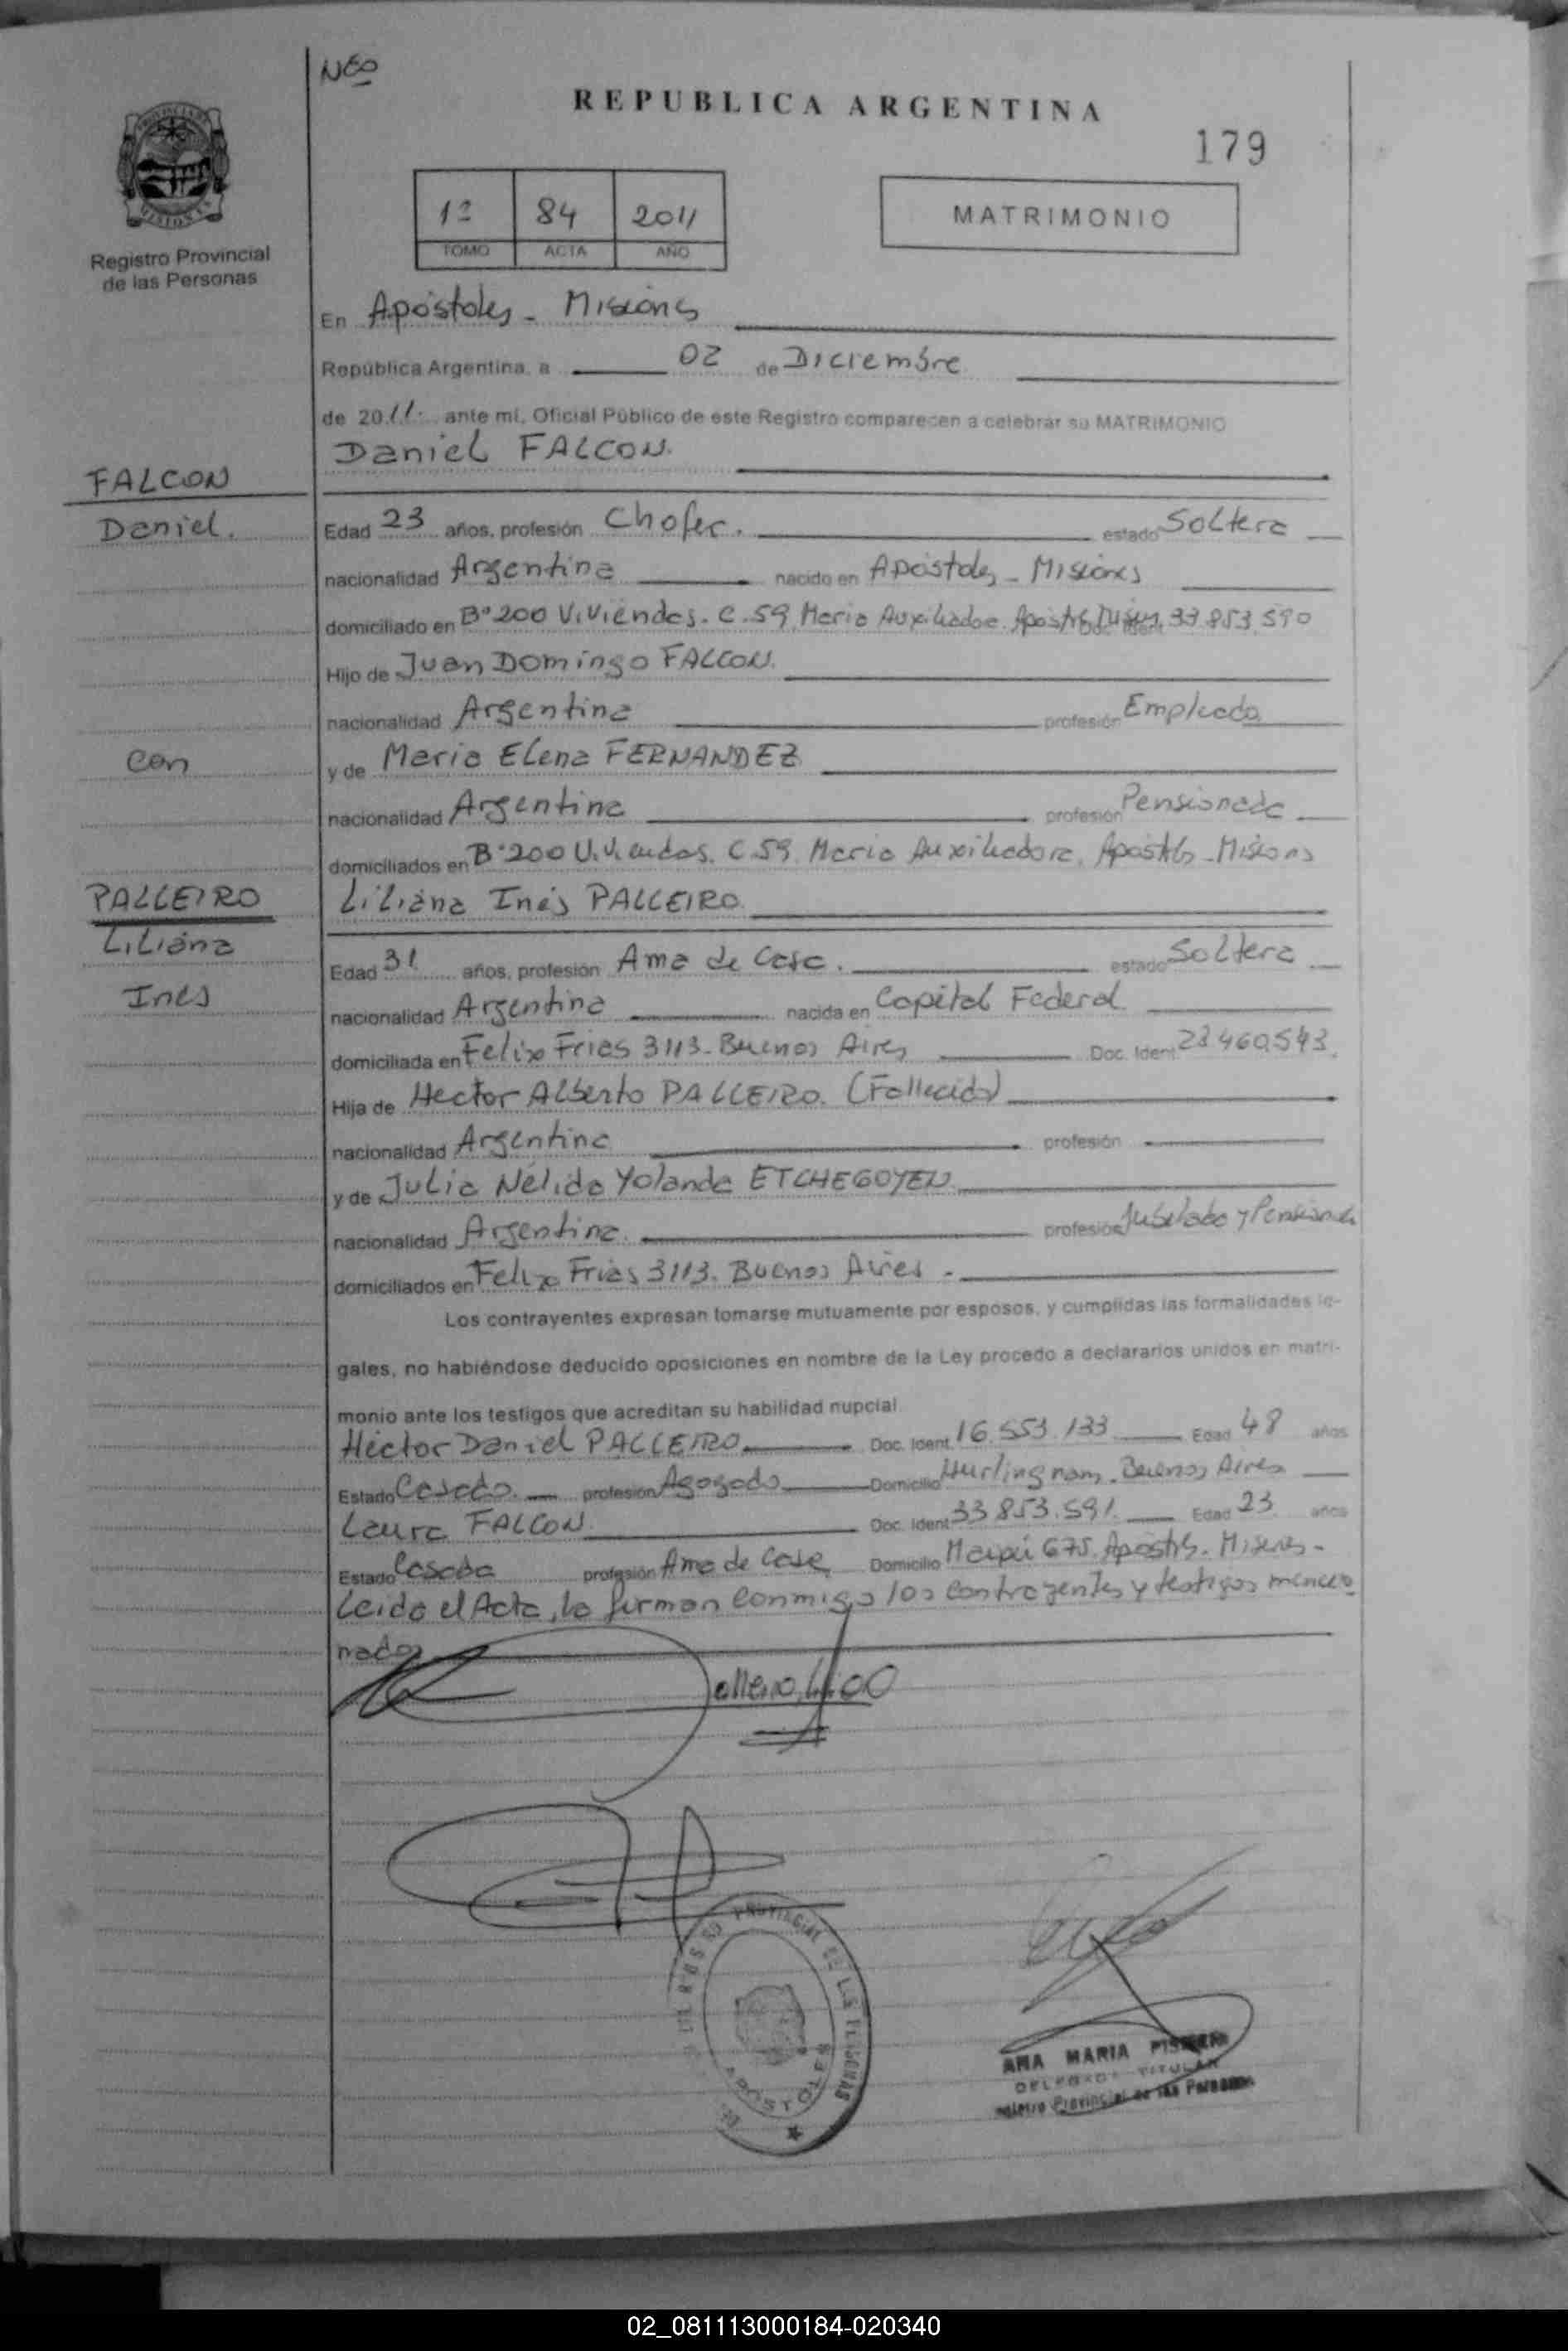 Neo
REPUBLICA ARGENTINA
179
Registro Provincial
de las Personas
84 2011
TOMO ACTA AÑO
MATRIMONIO
En Apóstoles - Misiones
República Argentina, a 02 de Diciembre
de 2011. ante mí, Oficial Público de este Registro comparecen a celebrar su MATRIMONIO
Daniel FALCON.
FALCON
Daniel.
Edad 23 años, profesión Chofer. estado Soltero
nacionalidad Argentina nacido en Apóstoles - Misiones
domiciliado en Bº 200 Viviendas. C. 59 Maria Auxiliadora. 33.853.590
Hijo de Juan Domingo FALCON.
nacionalidad Argentina profesión Empleado
con
y de Maria Elena FERNANDEZ
nacionalidad Argentina profesión Pensionada
domiciliados en Bº 200 Viviendas. C. 59. Maria Auxiliadora. Apóstoles - Misiones
PALLEIRO
Liliana
Inés
Liliana Inés PALLEIRO
Edad 31 años, profesión Ama de Casa. estado Soltera
nacionalidad Argentina nacida en Capital Federal
domiciliada en Felix Frias 3113 - Buenos Aires Doc. Ident.
Hija de Hector Alberto PALLEIRO. (Fallecido)
nacionalidad Argentina profesión
y de Julia Nélida Yolanda ETCHEGOYEN
nacionalidad Argentina. profesión Jubilada y Pensionada
domiciliados en Felix Frias 3113. Buenos Aires -
Los contrayentes expresan tomarse mutuamente por esposos, y cumplidas las formalidades le-
gales, no habiéndose deducido oposiciones en nombre de la Ley procedo a declararlos unidos en matri-
monio ante los testigos que acreditan su habilidad nupcial
Héctor Daniel PALLEIRO Doc. Ident. 16.553.133 Edad 48 años
Estado Casado. profesión Abogado Domicilio Hurlingham - Buenos Aires
Laura FALCON Doc. Ident. 33.853.591. Edad 23. años
Estado Casada profesión Ama de Casa Domicilio Maipú 675. Apóstoles - Misiones -
Leido el Acta, la firman conmigo los contrayentes y testigos mencio
nados
PROVINCIAL DE LAS PERSONAS
APOSTOLES
ANA MARIA
DELEGADA TITULAR
Registro Provincial de las Personas
02_081113000184-020340